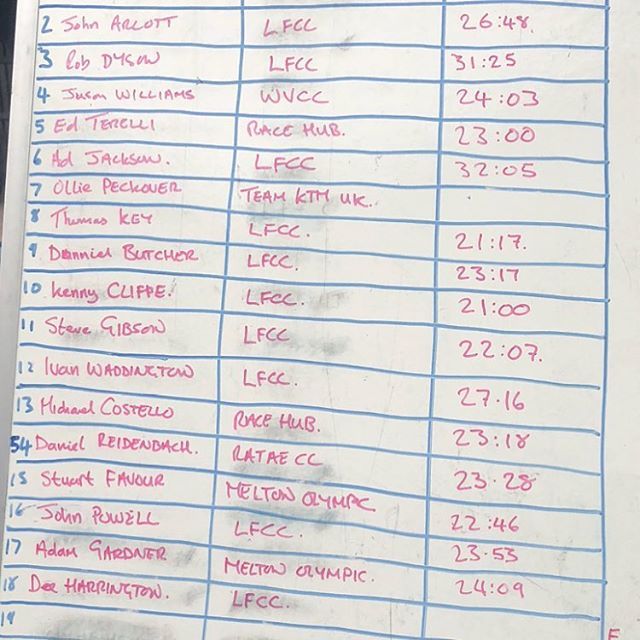 2 John ARLOTT LFCC 26:48.
3 Rob DYSON LFCC 31:25
4 Jason WILLIAMS WVCC 24:03
5 Ed TERELLI RACE HUB. 23:00
6 Ad JACKSON. LFCC 32:05
7 Ollie PECKOVER TEAM KTM UK.
8 Thomas KEY LFCC. 21:17.
9 Danniel BUTCHER LFCC. 23:17
10 Kenny CLIFFE. LFCC. 21:00
11 Steve GIBSON LFCC 22:07.
12 Ivan WADDINGTON LFCC. 27.16
13 Michael COSTELLO RACE HUB. 23:18
54 Daniel REIDENBACH. RATAE CC 23.28
15 Stuart FAVOUR MELTON OLYMPC 22:46
16 John POWELL LFCC. 23.53
17 Adam GARDNER MELTON OLYMPIC. 24:09
18 Dee HARRINGTON. LFCC.
19